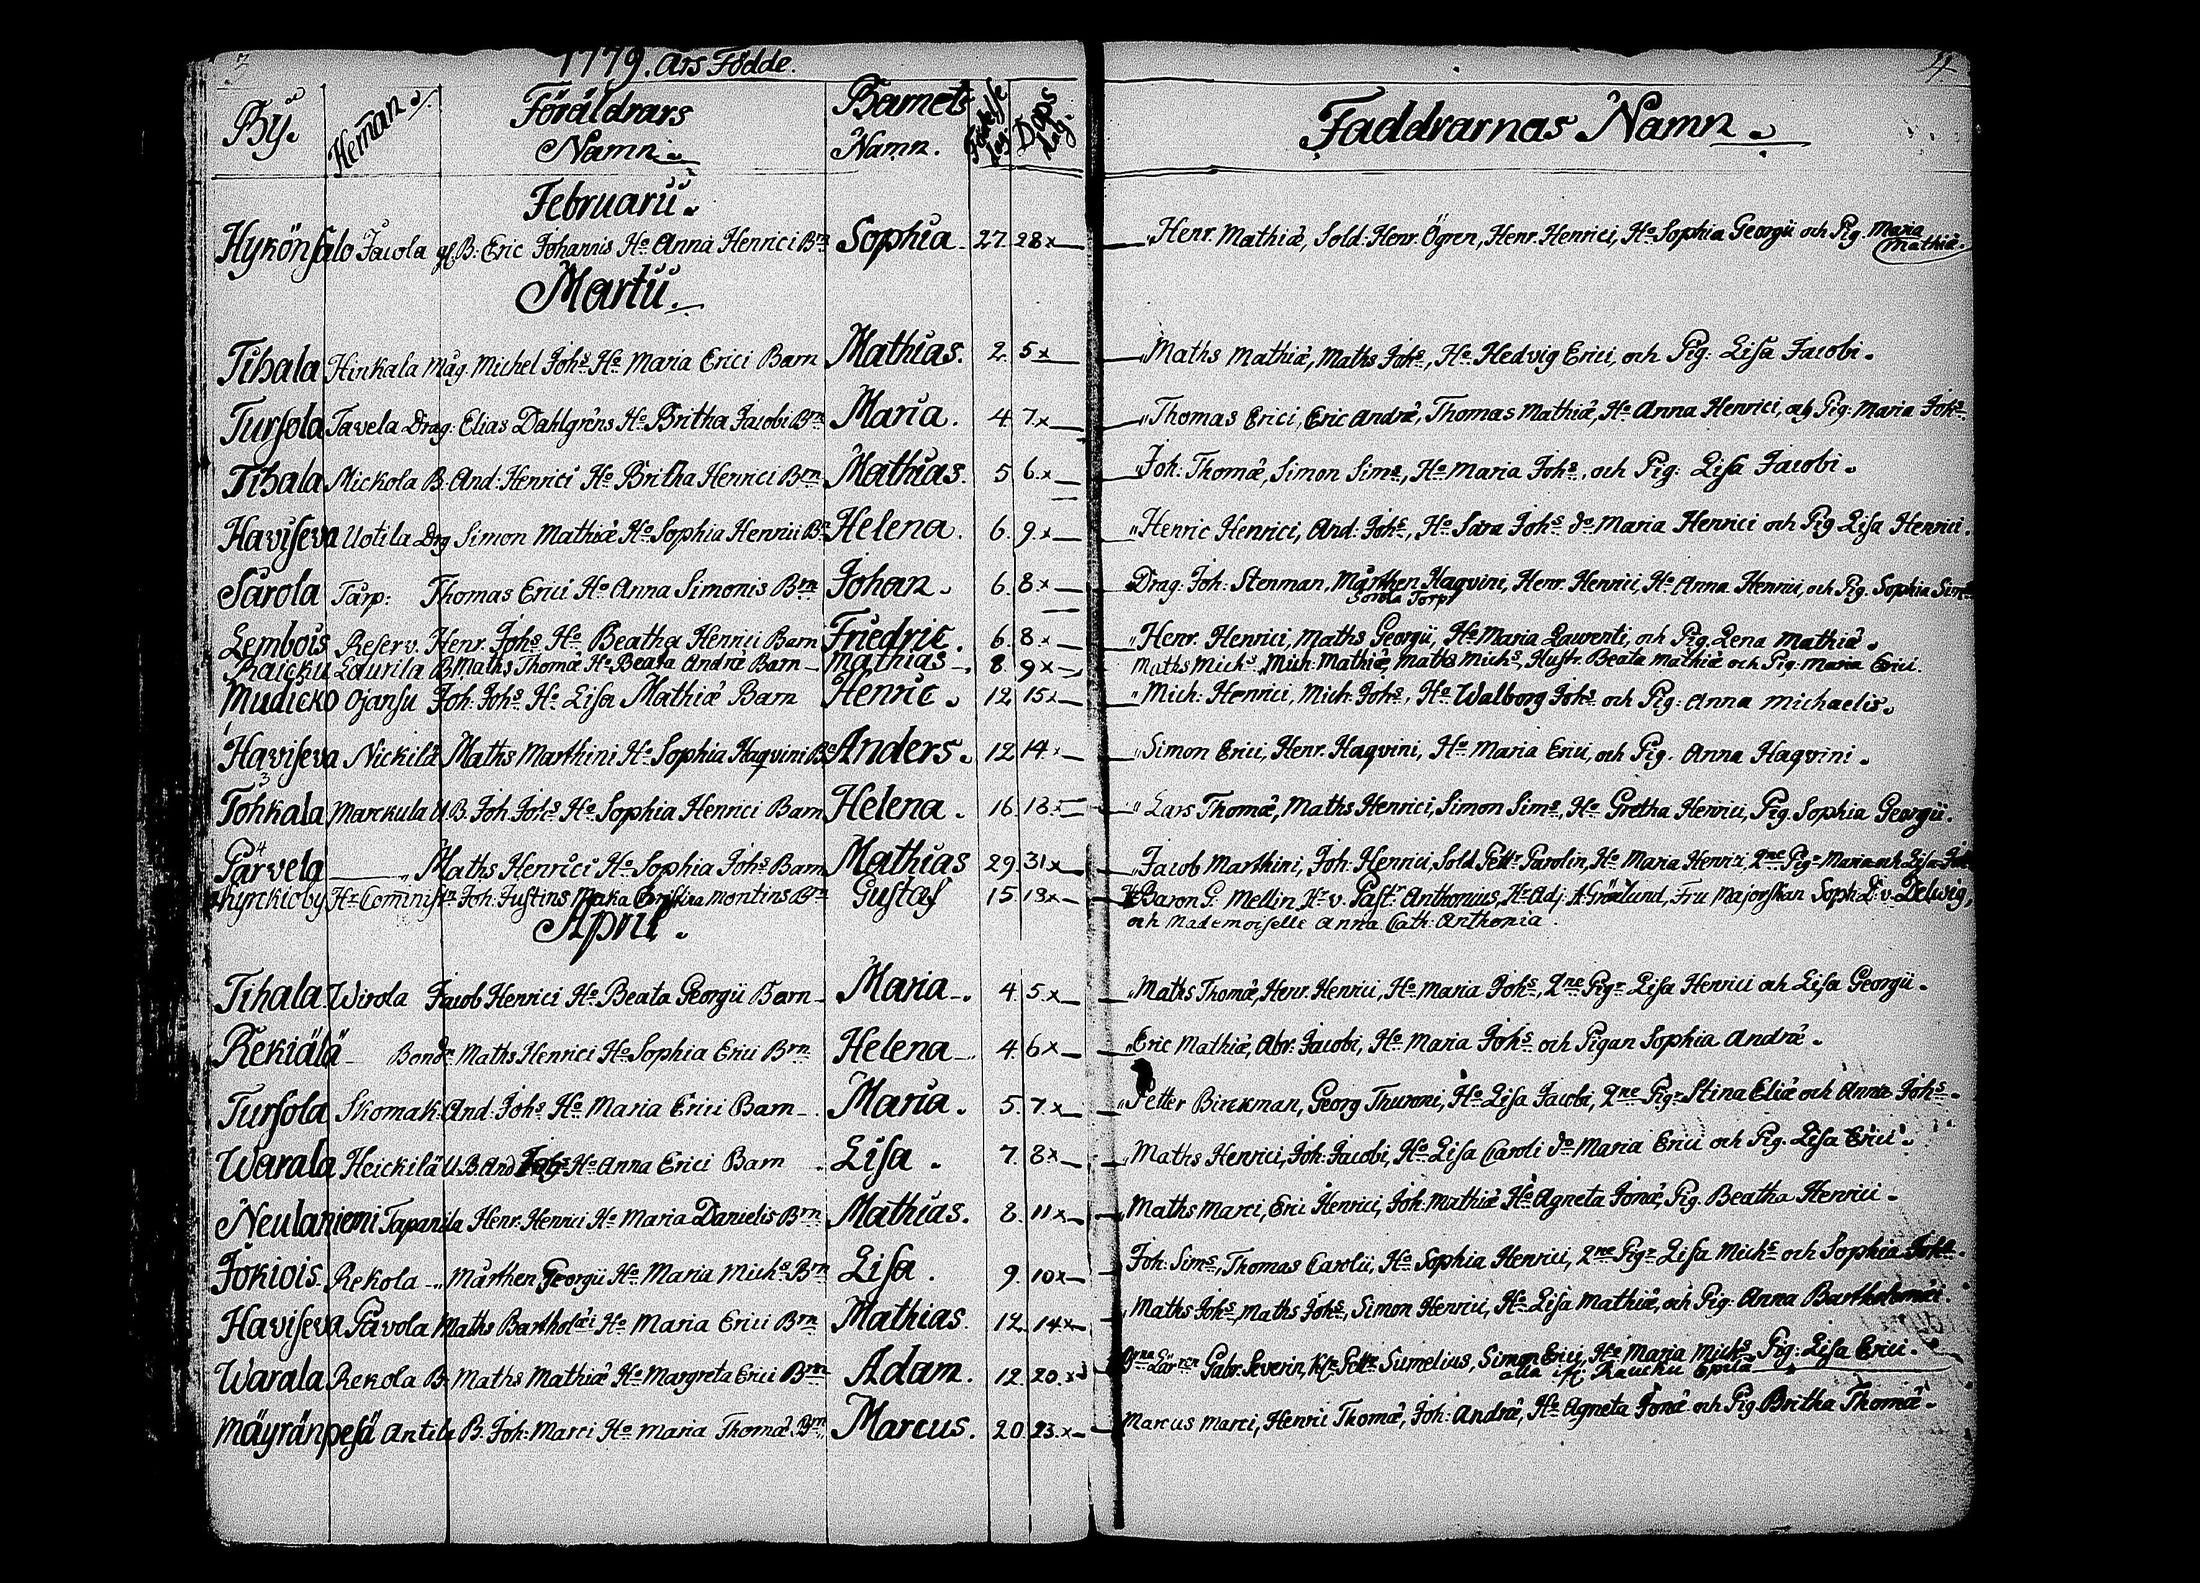 3
1779. Ars Födde.
4
By. Heman. Föräldrars Namn. Barnets Namn. Födelse dag. Dops dag. Faddrarnas Namn.
Februarii.
Hykönsalo Jacola B: Eric Johannis Ho Anna Henrici Brn Sophia 27. 28x Henr. Mathiæ, Sold: Henr. Ögren, Henr. Henrici, Ho Sophia Georgii och Pig. Maria Mathiæ.
Martii.
Tihala Hinkala Måg. Michel Johs Ho Maria Erici Barn Mathias. 2. 5x Maths Mathiæ, Maths Johs, Ho Hedvig Erici, och Pig: Lisa Jacobi.
Tursola Tavela Drag: Elias Dahlgréns Ho Britha Jacobi Brn Maria. 4. 7x Thomas Erici, Eric Andræ, Thomas Mathiæ, Ho Anna Henrici, och Pig: Maria Johs
Tihala Mickola B. And: Henrici Ho Britha Henrici Brn Mathias. 5 6x Joh: Thomæ, Simon Sims, Ho Maria Johs, och Pig: Lisa Jacobi.
Haviseva Uotila Drg Simon Mathiæ Ho Sophia Henrici Brn Helena. 6. 9x Henric Henrici, And: Johs, Ho Sara Johs do Maria Henrici och Pig Lisa Henrici.
Sarola Tarp: Thomas Erici Ho Anna Simonis Brn Johan. 6. 8x Drag: Joh: Stenman, Mårthen Haqvini, Henr. Henrici, Ho Anna Henrici, och Pig. Sophia Sims
Sorola Torp
Lembois Reserv. Henr. Johs Ho Beatha Henrici Barn Friedric. 6. 8x Henr. Henrici, Maths Georgii, Ho Maria Laurenti, och Pig. Lena Mathiæ.
Raicku Laurila B. Maths Thomæ Ho Beata Andræ Barn Mathias 8. 9x Maths Michs, Mich: Mathiæ, Maths Michs, Hustr. Beata Mathiæ och Pig: Maria Erici.
Mudicko Ojansu Joh: Johs Ho Lisa Mathiæ Barn Henric. 12 15x Mich: Henrici, Mich: Johs, Ho Walborg Johs och Pig: Anna Michaelis.
Haviseva Nickilä Maths Marthini Ho Sophia Haqvini Bn Anders. 12 14x Simon Erici, Henr. Haqvini, Ho Maria Erici, och Pig. Anna Haqvini.
3
Tohkala Marckula U.B. Joh: Johs Ho Sophia Henrici Barn Helena. 16. 18x Lars Thomæ, Maths Henrici, Simon Sims, Ho Gretha Henrici, Pig. Sophia Georgii.
4
Parvela Maths Henrici Ho Sophia Johs Barn Mathias 29. 31x Jacob Marthini, Joh: Henrici, Sold Pettr Parolin, Ho Maria Henrici, 2ne Pigr Maria och Lisa
Kyrckioby Hr Cominist Joh: Justins Maka Christina Montins Brn Gustaf 15 18x Baron G. Mellin, Hr v. Past: Anthonius, Hr Adj. Grönlund, Fru Majorskan Soph: L: v. Delwig,
och Mademoiselle Anna Cath: Anthonia.
April.
Tihala Wirola Jacob Henrici Ho Beata Georgii Barn Maria 4. 5x Maths Thomæ, Henr. Henrici, Ho Maria Johs, 2ne Pigr Lisa Henrici och Lisa Georgii.
Rekiälä Bond. Maths Henrici Ho Sophia Erici Brn Helena 4. 6x Eric Mathiæ, Abr: Jacobi, Ho Maria Johs och Pigan Sophia Andræ.
Tursola Skomak. And: Johs Ho Maria Erici Barn Maria. 5. 7x Petter Birckman, Georg Thuroni, Ho Lisa Jacobi, 2ne Pigr Stina Eliæ och Anna Johs.
Warala Heickilä U.B. And Johs Ho Anna Erici Barn Lisa. 7. 8x Maths Henrici, Joh: Jacobi, Ho Lisa Caroli do Maria Erici och Pig. Lisa Erici.
Neulaniemi Tapanila Henr. Henrici Ho Maria Danielis Brn Mathias. 8. 11x Maths Marci, Erici Henrici, Joh: Mathiæ Ho Agneta Jonæ, Pig. Beatha Henrici.
Jokiois Rekola Mårthen Georgii Ho Maria Michs Brn Lisa. 9. 10x Joh: Sims, Thomas Carolii, Ho Sophia Henrici, 2ne Pigr Lisa Michs och Sophia Johs.
Haviseva Pavola Maths Bartholæi Ho Maria Erici Brn Mathias. 12. 14x Maths Johs, Maths Johs, Simon Henrici, Ho Lisa Mathiæ, och Pig: Anna Bartholomæi.
Warala Rekola B. Maths Mathiæ Ho Margreta Erici Brn Adam. 12. 20x Gabr. Severin, Pettr Sumelius, Simon Erici, Ho Maria Michs, Pig: Lisa Erici.
alla ifr. Raucku
Mäyränpesä Antila B. Joh: Marci Ho Maria Thomæ Brn Marcus. 20. 23x Marcus Marci, Henric Thomæ, Joh: Andræ, Ho Agneta Jonæ och Pig Britha Thomæ.